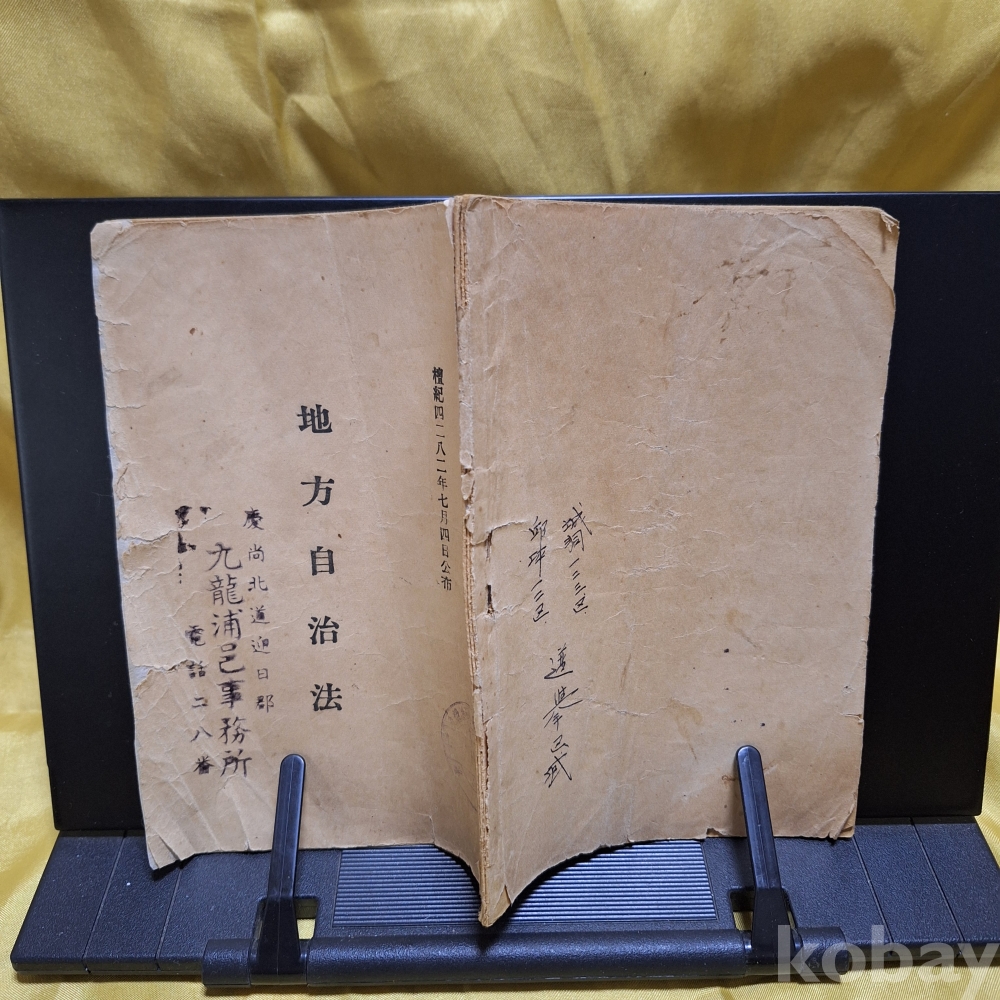 檀紀四二八二年七月四日公布
地方自治法
慶尚北道迎日郡
九龍浦邑事務所
電話二八番
一二三区
邱坪一二三区
選挙区域
kobay